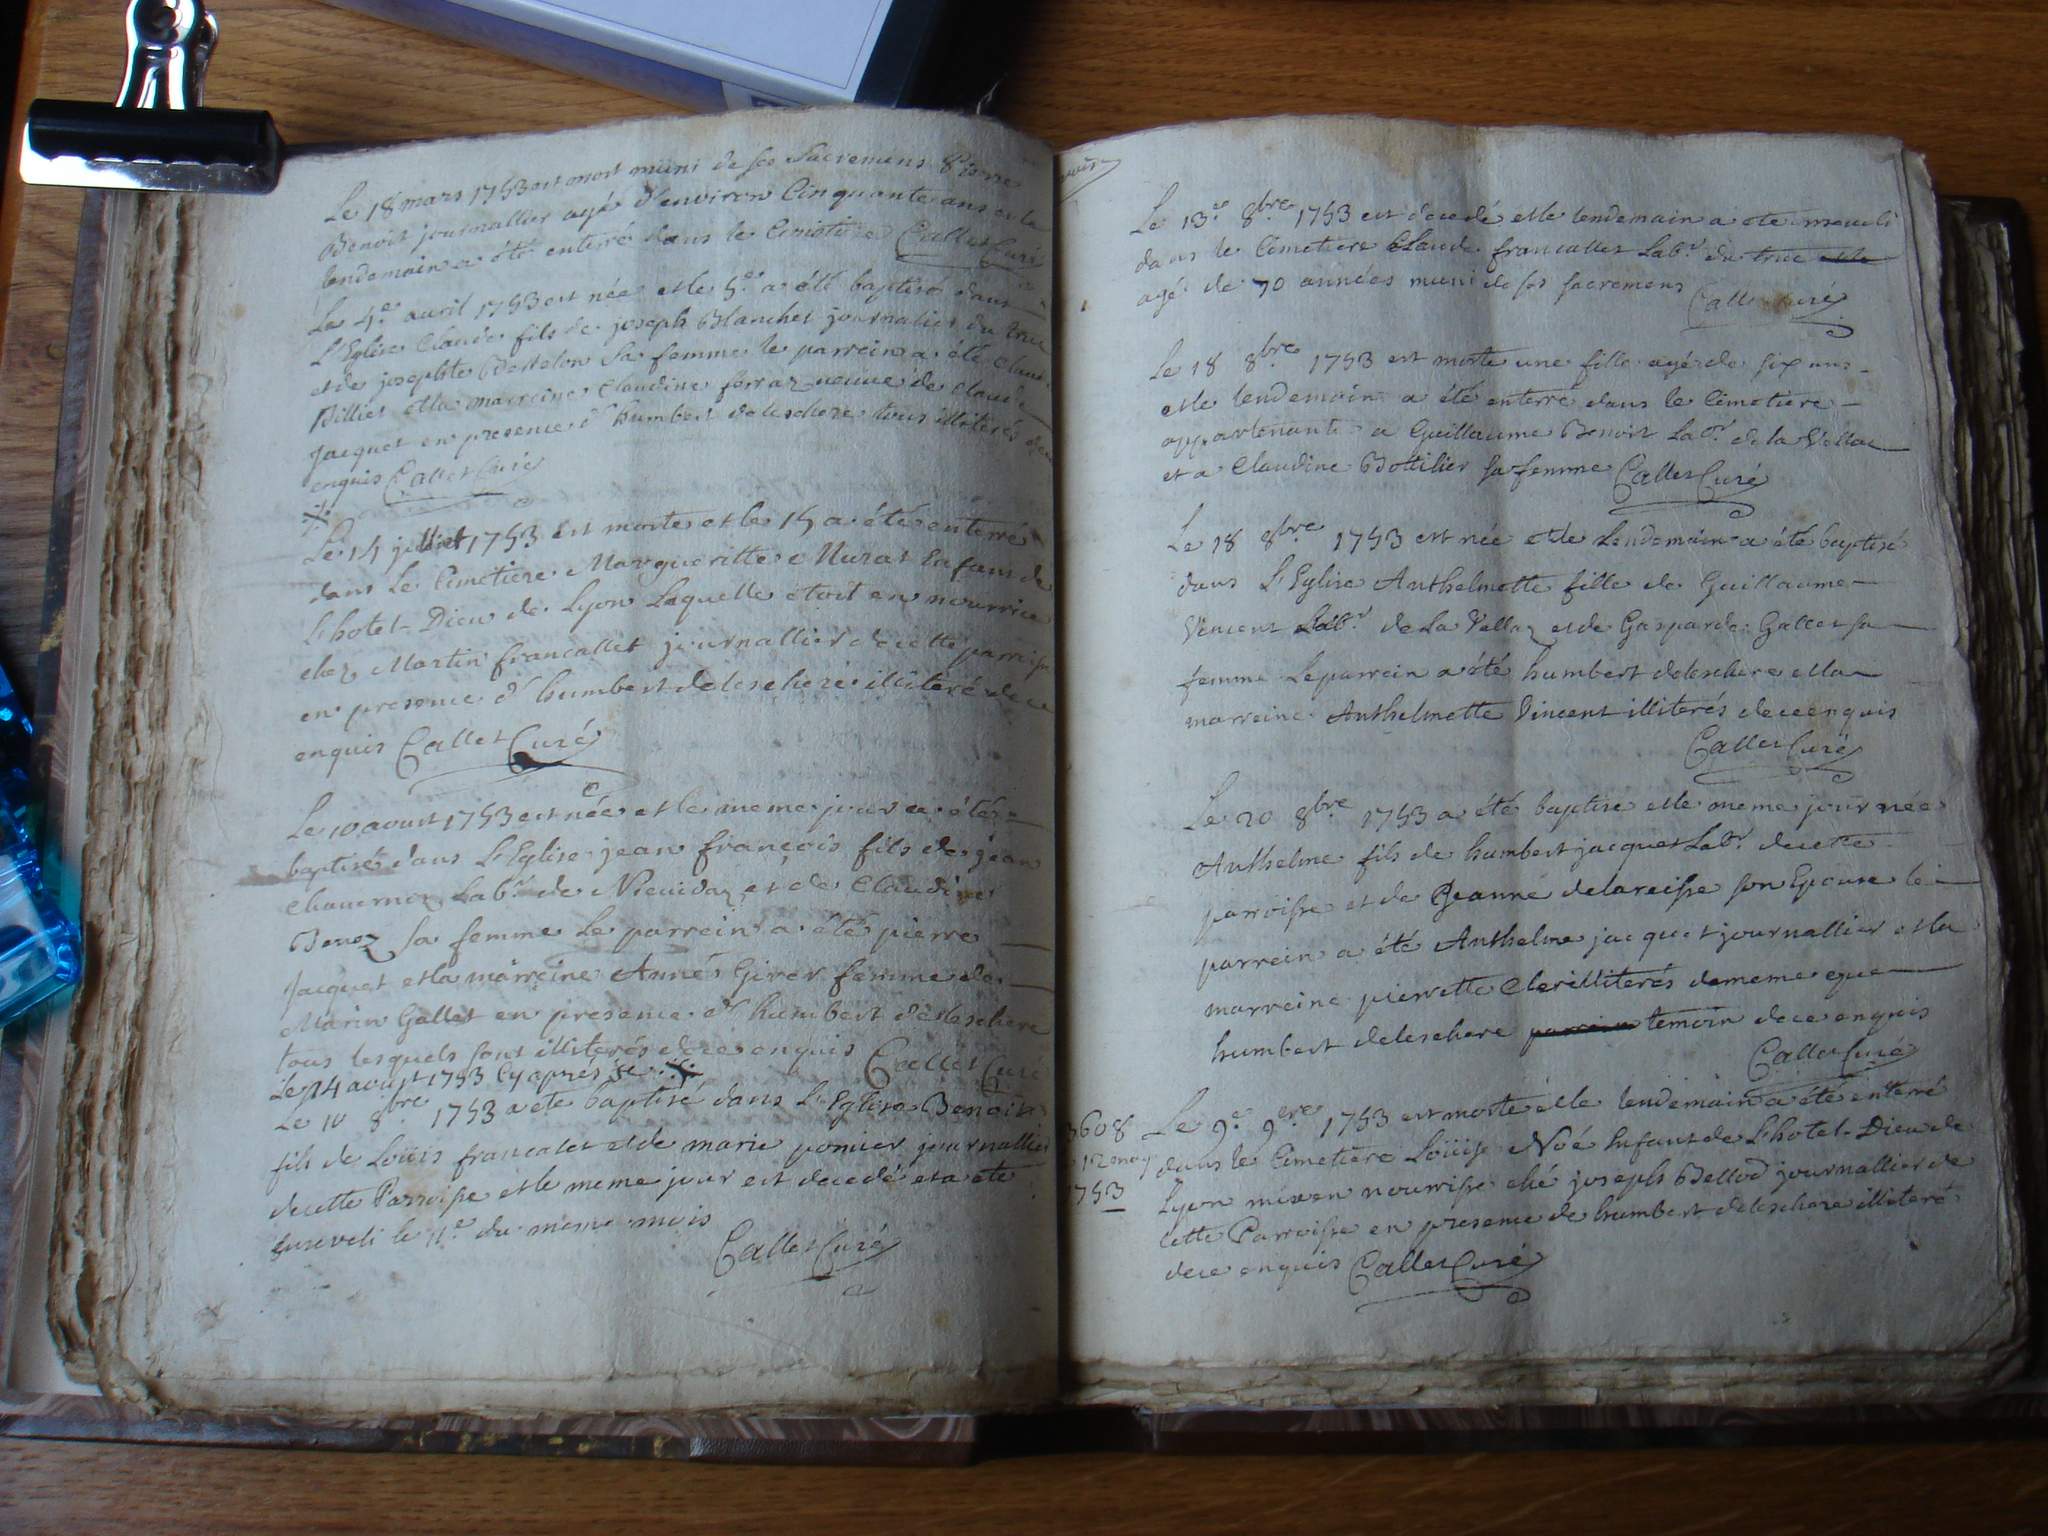 Le 18 mars 1753 est mort muni de ses Sacremens Pierre
Benoit journallier agé d'environ Cinquante ans et le
lendemain a été enterré dans le Cimetiere Callet Curé
Le 4.e avril 1753 est née et le 5.e a été baptisé dans
L'Eglise Claude fils de joseph Blanchet journalier du truc
et de josephte Berthelon sa femme le parrein a été Claude
Billiet et la marreine Claudine ferraz veuve de Claude
Jacquet en presence d'humbert deleschere tous illiterés de ce
enquis Callet Curé
Le 14 juillet 1753 est morte et le 15 a été enterré
dans Le Cimetiere Margueritte Murat Enfant de
L'hotel-Dieu de Lyon Laquelle étoit en nourrice
chez Martin francallet journallier de cette parroisse
en presence d'humbert deleschere illiteré de ce
enquis Callet Curé
Le 10 aoust 1753 est née et le meme jour a été
baptisé dans L'Eglise jean françois fils de jean
Chavernoz Lab.r de Nicuidaz et de Claudine
Benoz sa femme Le parrein a été pierre
Jacquet et la marreine Anne Giver femme de
Marin Gallet en presence d'humbert deleschere
tous lesquels sont illiterés de ce enquis Callet Curé
Le 14 aoust 1753 cy après
Le 10 8bre 1753 a été baptisé dans L'Eglise Benoit
fils de Loüis francalet et de marie pomier journallier
de cette Parroisse et le meme jour est decedé et a été
enseveli le 11.e du meme mois
Callet Curé
Le 13.e 8bre 1753 est decedé et le lendemain a été enseveli
dans le Cemetiere Claude francallet Lab.r du truc et le
agé de 70 années muni de ses sacremens Callet Curé
Le 18 8bre 1753 est morte une fille agé de six ans
et le lendemain a été enterré dans le Cimetiere
appartenante a Guillaume Benoit Lab.r de la Vellaz
et a Claudine Bottilier sa femme Callet Curé
Le 18 8bre 1753 est née et le Lendemain a été baptisé
dans L'Eglise Anthelmette fille de Guillaume
Vincent Lab.r de La Vellaz et de Gasparde Gallet sa
femme Le parrein a été humbert deleschere et la
marreine Anthelmette Vincent illiterés de ce enquis
Callet Curé
Le 20 8bre 1753 a été baptisé et le meme jour née
Anthelme fils de humbert jacquet Lab.r de cette
parroisse et de Jeanne delaraisse son Epouse le
parrein a été Anthelme jacquet journallier et la
marreine pierrette Clerc illiterés de meme que
humbert deleschere parrein temoin de ce enquis
Callet Curé
3608
12 may
1753
Le 9.e 9bre 1753 est morte et le lendemain a été enterré
dans le Cimetiere Loüise Noé Enfant de L'hotel-Dieu de
Lyon mise en nourrisse ché joseph Bellod journallier de
cette Parroisse en presence de humbert deleschere illiteré
de ce enquis Callet Curé